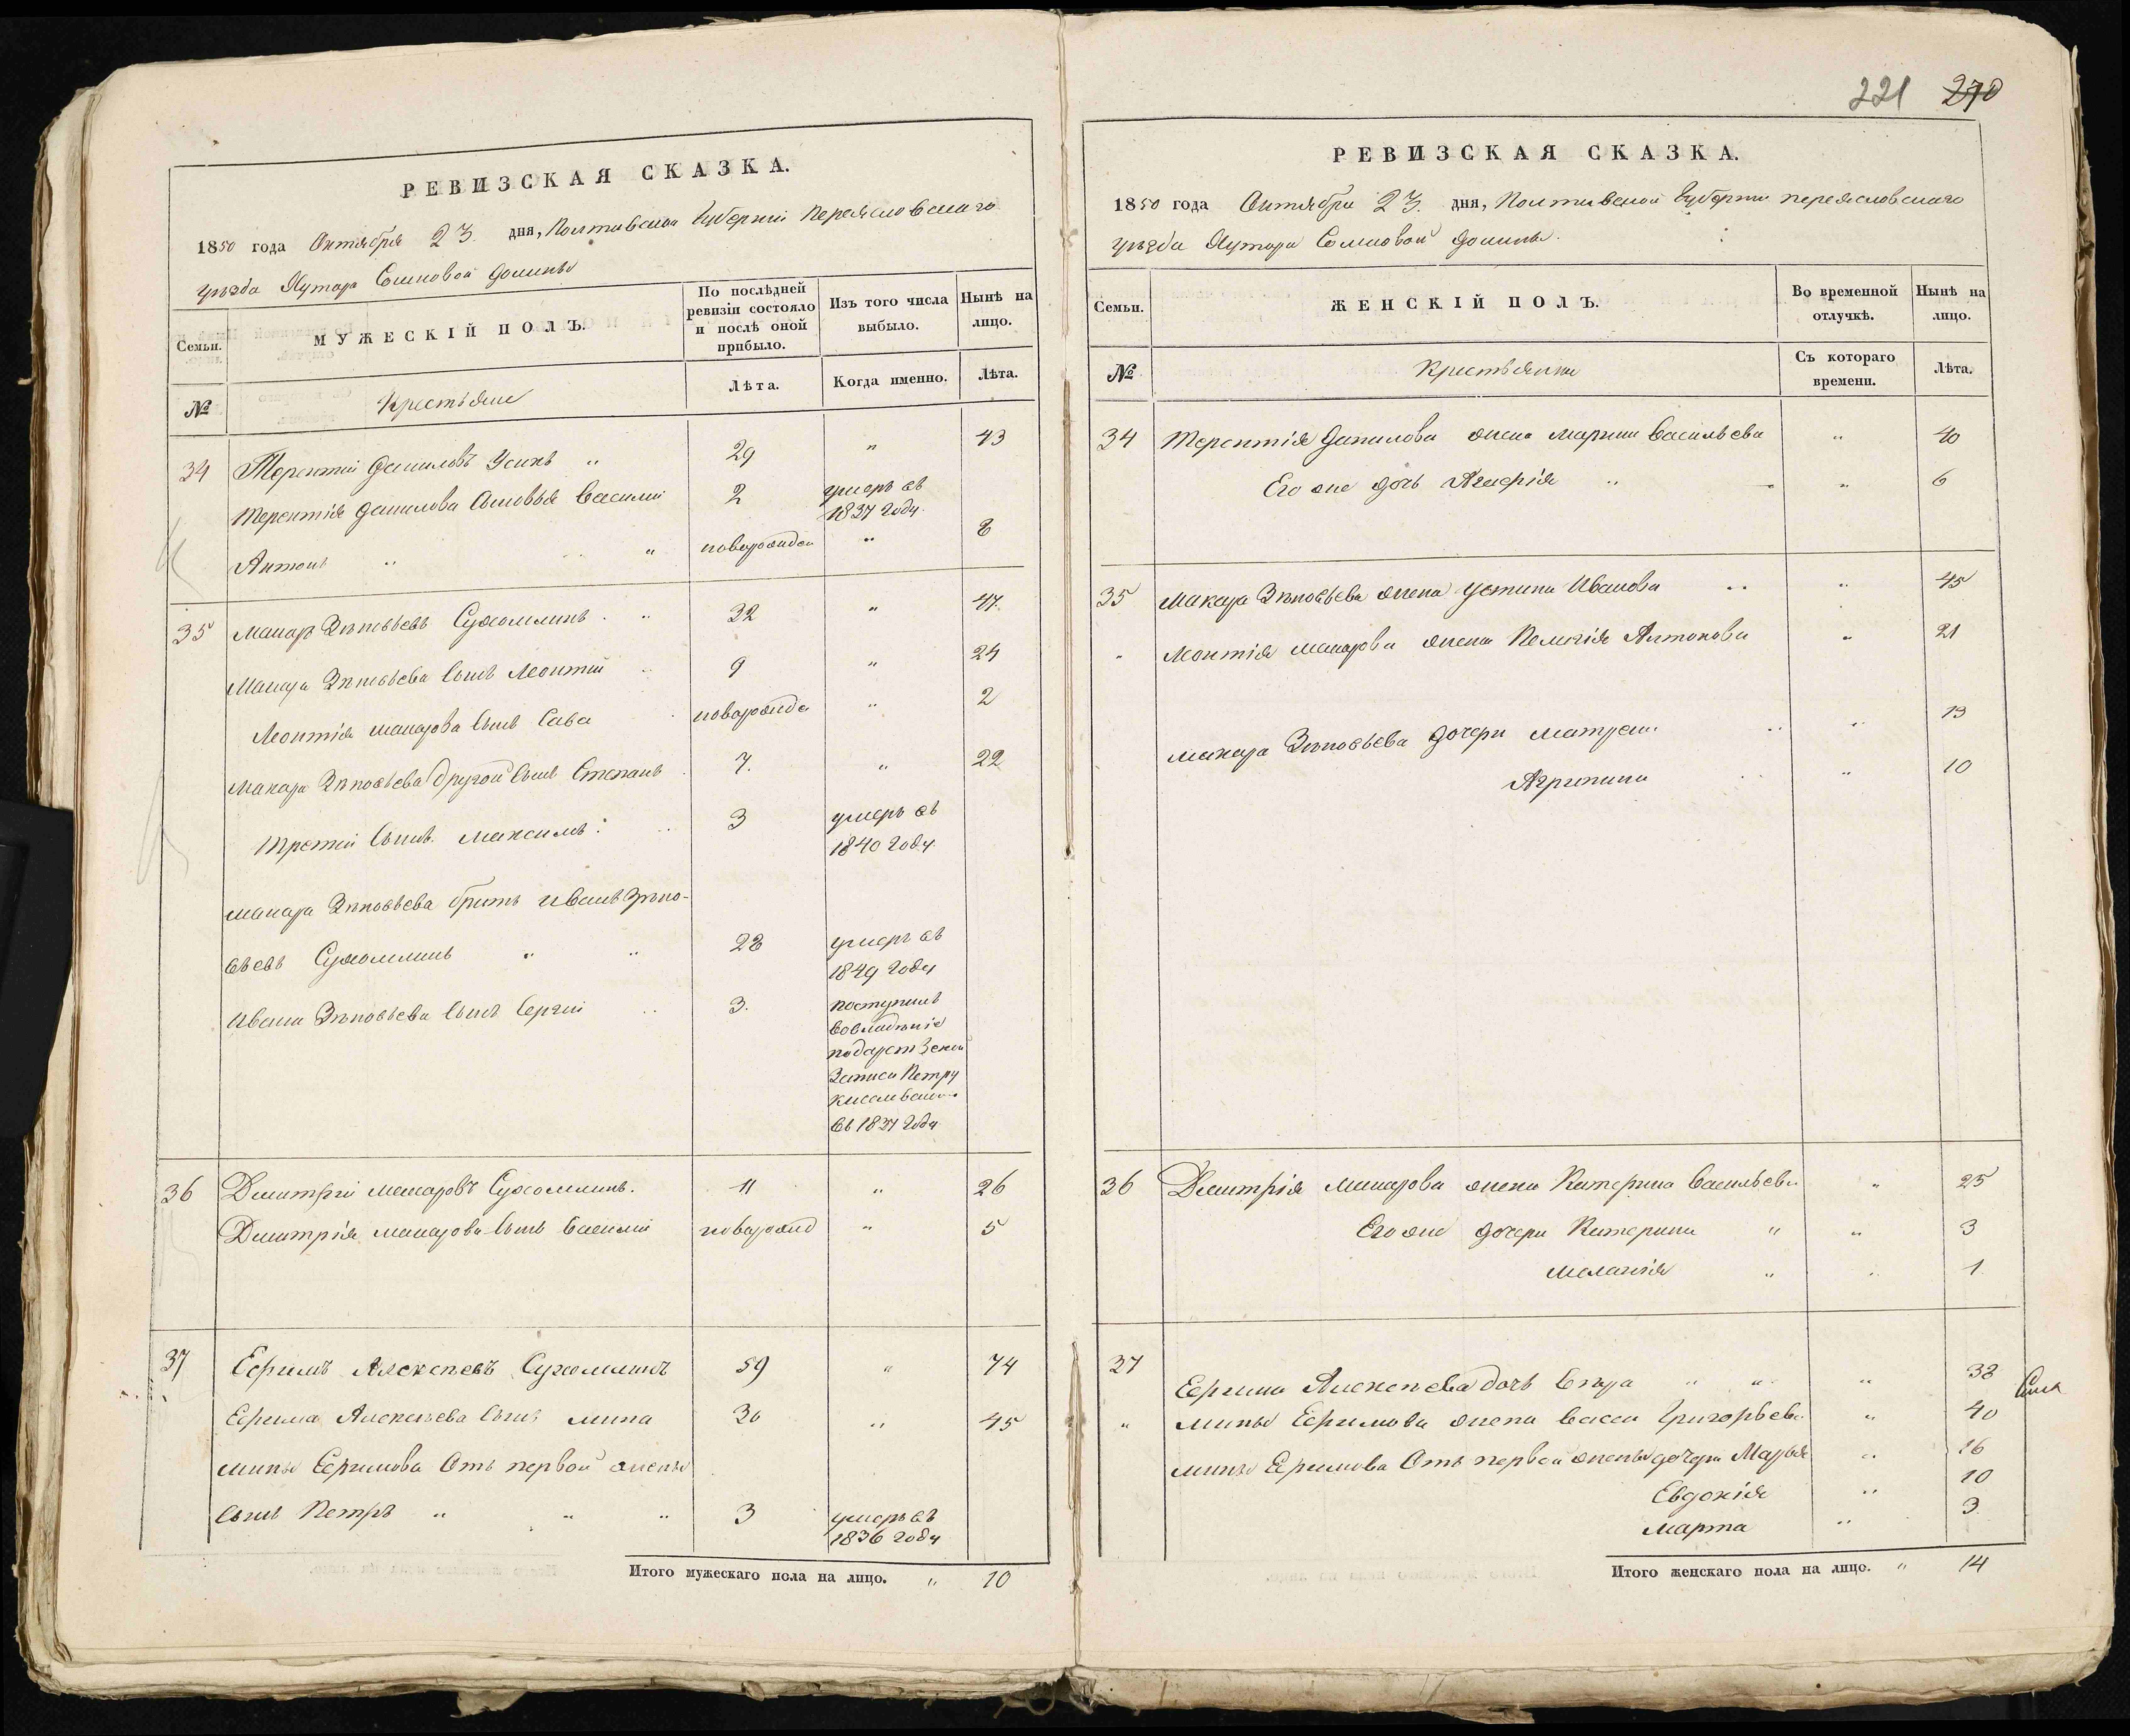 221 270
РЕВИЗСКАЯ СКАЗКА.
1850 года Октября 23. дня, Полтавской Губерніи Переяславскаго
уѣзда Хутора Сомковой Долины
Семьи. МУЖЕСКІЙ ПОЛЪ. По послѣдней ревизіи состояло и послѣ оной прибыло. Изъ того числа выбыло. Нынѣ на лицо.
№ Крестьяне Лѣта. Когда именно. Лѣта.
34 Терентій Даниловъ Усикъ " 29 " 43
Терентія Данилова Сыновья Василій 2 умеръ въ
1837 году
Антонъ " " новорожден " 8
35 Макаръ Зѣновьевъ Сухомлинъ " 32 " 47.
Макара Зѣновьева Сынъ Леонтій 9 " 24
Леонтія Макарова Сынъ Сава новорожде " 2
Макара Зѣновьева другой Сынъ Степанъ 7. " 22
третій Сынъ Максимъ 3 умеръ въ
1840 году
Макара Зѣновьева братъ Иванъ Зѣно-
вьевъ Сухомлинъ " " 28 умеръ въ
1849 году
Ивана Зѣновьева Сынъ Сергій 3. поступилъ
во владѣніе
по дарствен
записи Петру
въ 1837 году
36 Дмитрій Макаровъ Сухомлинъ. 11 " 26
Дмитрія Макарова Сынъ Василій новорожд " 5
37 Ефримъ Алексѣевъ Сухомлинъ 59 " 74
Ефрима Алексѣева Сынъ Мина 30 " 45
Мины Ефримова Отъ первой жены
Сынъ Петръ " " " 3 умеръ въ
1836 году
Итого мужескаго пола на лицо. " 10
РЕВИЗСКАЯ СКАЗКА.
1850 года Октября 23. дня, Полтавской Губерніи Переясловскаго
уѣзда Хутора Сомковой Долины.
Семьи. ЖЕНСКІЙ ПОЛЪ. Во временной отлучкѣ. Нынѣ на лицо.
№ Крестьянки Съ котораго времени. Лѣта.
34 Терентія Данилова жена Марина Васильева " 40
Его же дочь Агафія " " 6
35 Макара Зѣновьева жена Устина Иванова " " 45
" Леонтія Макарова жена Пелагія Антонова " 21
Макара Зѣновьева дочери Матрена " " 13
Агрипина " 10
36 Дмитрія Макарова жена Катерина Васильева " 25
Его же дочери Катерина " " 3
Меланія " " 1
37 Ефрима Алексѣева дочь " " " 38
" Мины Ефримова жена Васса Григорьева " 40
Мины Ефримова Отъ первой жены дочери Марья " 16
Евдокія " 10
Марта " 3.
Итого женскаго пола на лицо. " 14